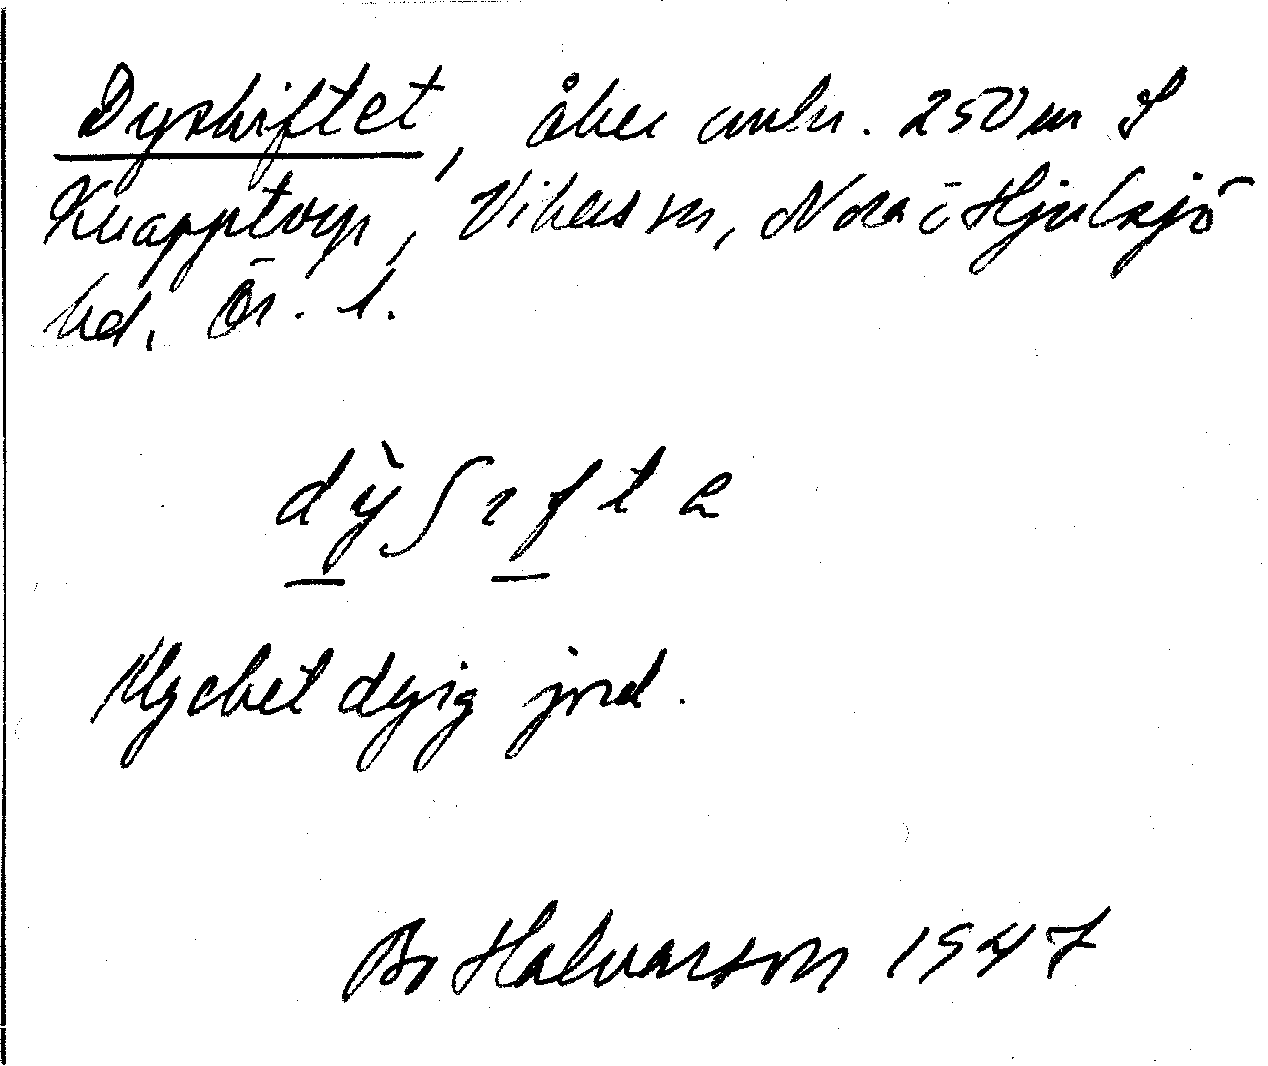 Dyskiftet, åker omkr. 250 m S
Knapptorp, Vikers sn, Nora o Hjulsjö
bd. Ör. l.
dỳʃɪftə
Mycket dyig jord.
Bo Halvarson 1947